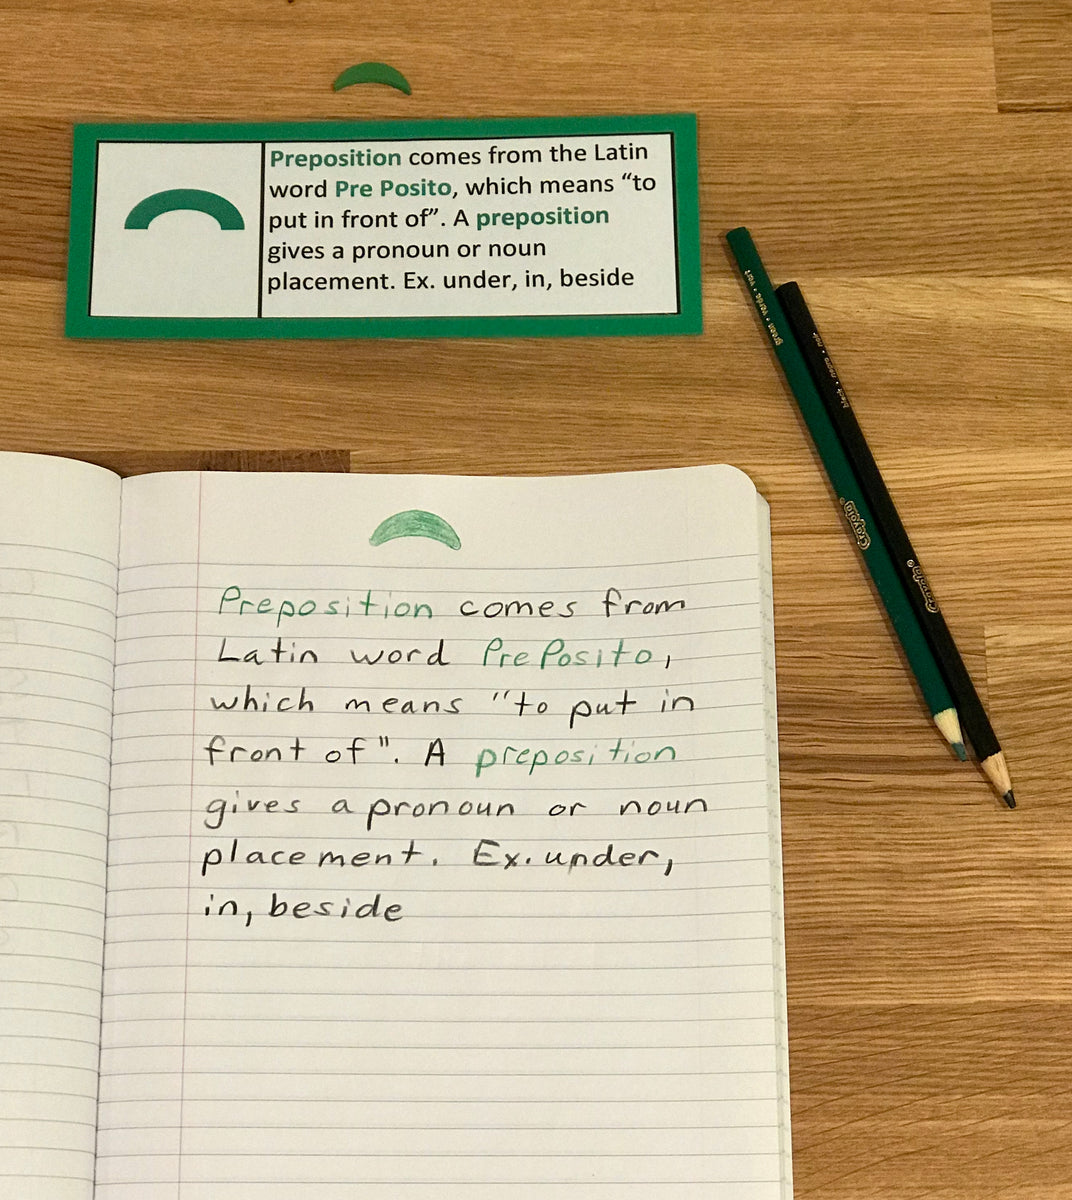 Preposition comes from the Latin
word Pre Posito, which means “to
put in front of”. A preposition
gives a pronoun or noun
placement. Ex. under, in, beside
green • verde • vert
black • negro • noir
Crayola
Crayola
Preposition comes from
Latin word Pre Posito,
which means "to put in
front of". A preposition
gives a pronoun or noun
placement. Ex. under,
in, beside